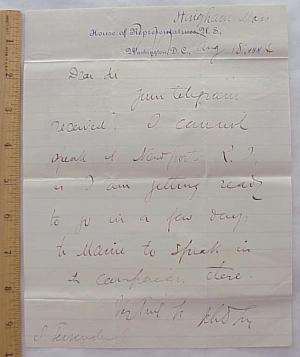 Hingham Mass
House of Representatives, U.S.,
Washington, D.C., Aug 18, 188
Dear Sir
Your telegram
received. I cannot
speak at Newport R. I.
as I am getting ready
to go in a few days
to Maine to speak in
the campaign there.